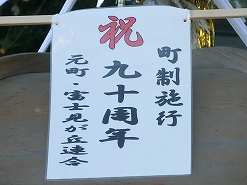 祝
町制施行
九十周年
元町・富士見が丘連合